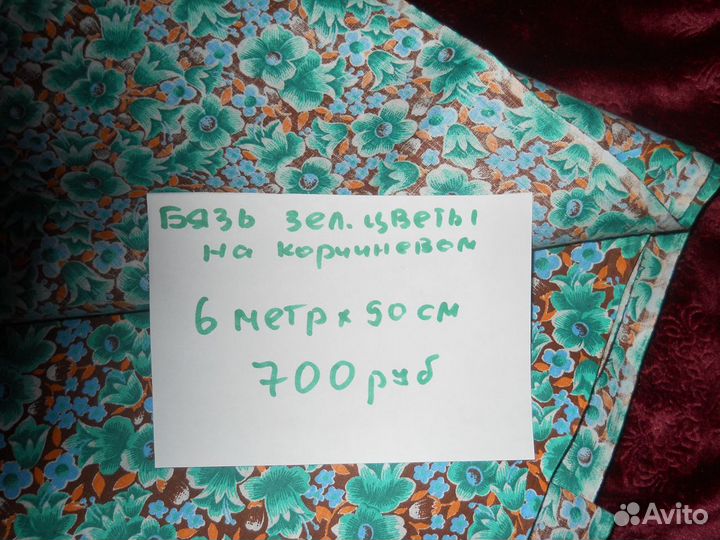 БЯЗЬ зел. цветы
на коричневом
6 метр х 90 см
700 руб
Avito